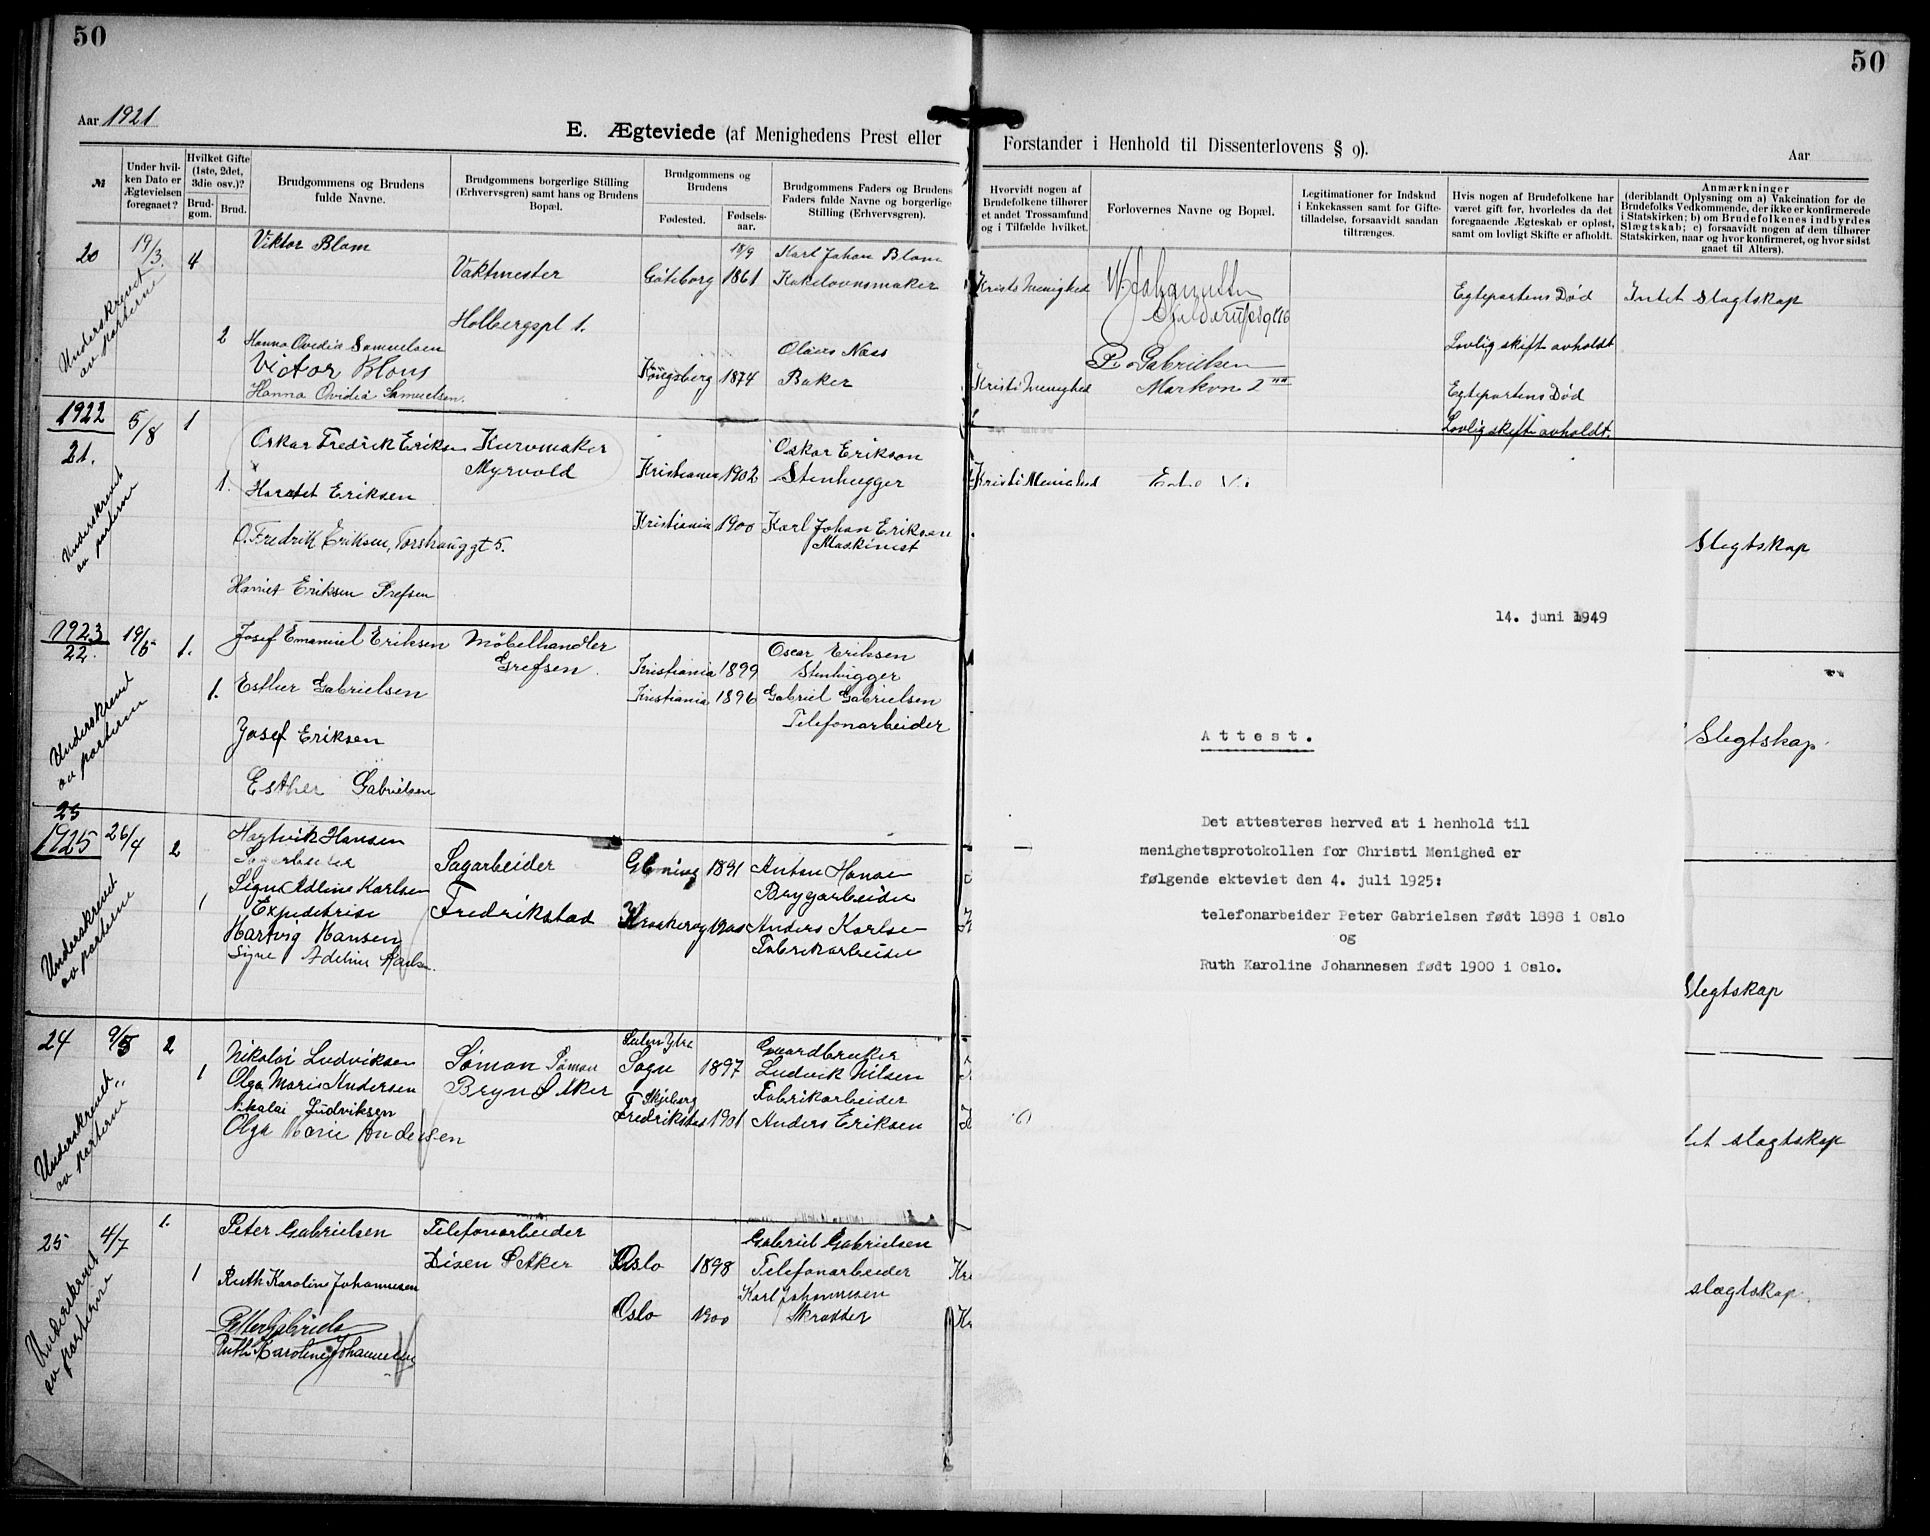 50
50
Aar 1921
E. Ægteviede (af Menighedens Prest eller
Forstander i Henhold til Dissenterlovens § 9).
Aar
№
Under hvil-
ken Dato er
Ægtevielsen
foregaaet?
Hvilket Gifte
(1ste, 2det,
3die osv.)?
Brud-
gom.
Brud.
Brudgommens og Brudens
fulde Navne.
Brudgommens borgerlige Stilling
(Erhvervsgren) samt hans og Brudens
Bopæl.
Brudgommens og
Brudens
Fødested.
Fødsels-
aar.
Brudgommens Faders og Brudens
Faders fulde Navne og borgerlige
Stilling (Erhvervsgren).
Hvorvidt nogen af
Brudefolkene tilhører
et andet Trossamfund
og i Tilfælde hvilket.
Forlovernes Navne og Bopæl.
Legitimationer for Indskud
i Enkekassen samt for Gifte-
tilladelse, forsaavidt saadan
tiltrænges.
Hvis nogen af Brudefolkene har
været gift før, hvorledes da det
foregaaende Ægteskab er opløst,
samt om lovligt Skifte er afholdt.
Anmærkninger
(deriblandt Oplysning om a) Vakcination for de
Brudefolks Vedkommende, der ikke er konfirmerede
i Statskirken; b) om Brudefolkenes indbyrdes
Slægtskab; c) forsaavidt nogen af dem tilhører
Statskirken, naar og hvor konfirmeret, og hvor sidst
gaaet til Alters).
20
19/3.
4
Viktor Blom
Vaktmester
Göteborg
18/9
1861
Karl Johan Blom
Kakelovnsmaker
Kristi Menighed
Egtepartens Død
Intet Slagtskap
Holbergspl 1.
2
Hanna Ovidia Samuelsen
Olaves Næss
Lovlig skifte avholdt
Kongsberg
1874
Baker
Kristi Menighed
P. Gabrielsen
Markvn 2
Egtepartens Død
Lovlig skifte avholdt.
Victor Blom
Hanna Ovidia Samuelsen.
Underskrevet
av parterne
1922
21.
5/8
1
Oskar Fredrik Eriksen
Kurvmaker
Myrvold
Kristiania
1902
Oskar Erikson
Stenhugger
Kristi Menighed
1.
Harriet Eriksen
Kristiania
1900
Karl Johan Eriksen
Maskinist
Slegtskap
O. Fredrik Eriksen, Torshauggt 5.
Harriet Eriksen Grefsen
Underskrevet
av parterne
1923
22.
19/5
1.
Josef Emanuel Eriksen
Møbelhandler
Grefsen.
Kristiania
1899
Oscar Eriksen
Stenhugger
1.
Esther Gabrielsen
Kristiania
1896
Gabriel Gabrielsen
Telefonarbeider
Slegtskap.
Josef Eriksen
Esther Gabrielsen
Underskrevet
av parterne
23
1925
26/4
2
Hansen
Sagarbeider
Sagarbeider
Fredrikstad
1891
Anton Hansen
Brygarbeider
1
Signe Adline Karlsen
Expeditrise
Anders Karlsen
Fabrikarbeider
Slegtskap
Hartvig Hansen
Signe Adeline Karlsen.
Underskrevet
av parterne
24
9/5
2
Nikolai Ludviksen
Sømon Sømon
Bryn Ø Aker
Sogn
1897
Gaardbruker
Ludvik Nilsen
1
Olga Marie Andersen
Skjeberg
Fredrikstad
1901
Fabrikarbeider
Anders Eriksen
slagtskap
Nikolai Ludviksen
Olga Marie Andersen
Underskrevet
av parterne
25
4/7
1.
Peter Gabrielsen
Telefonarbeider
Disen Ø Aker
Oslo
1898
Gabriel Gabrielsen
Telefonarbeider
1
Ruth Karoline Johannesen
Oslo
1900
Karl Johannesen
Skrædder
slægtskap.
Ruth Karoline Johannesen
Underskrevet
av parterne
14. juni 1949
Attest.
Det attesteres herved at i henhold til
menighetsprotokollen for Christi Menighed er
følgende ekteviet den 4. juli 1925:
telefonarbeider Peter Gabrielsen født 1898 i Oslo
og
Ruth Karoline Johannesen født 1900 i Oslo.